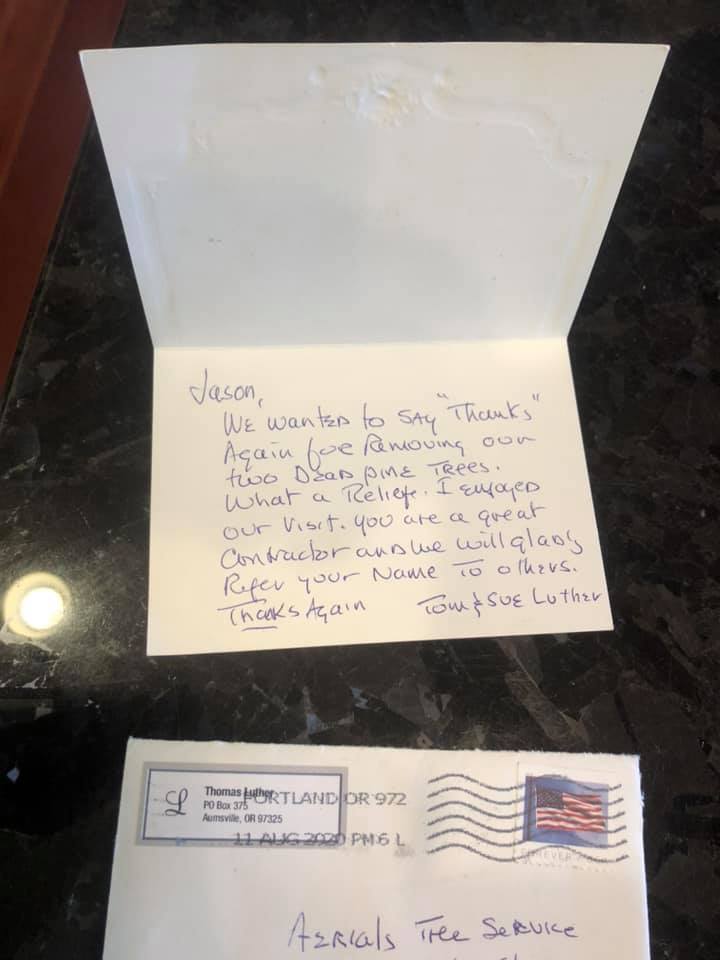 Jason,
WE wanted to SAY "Thanks"
Again for Removing our
two Dead pine Trees.
What a Relief. I enjoyed
our visit. you are a great
Contractor and we will gladly
Refer your Name To others.
Thanks Again Tom & SUE Luther
L
Thomas Luther
PO Box 375
Aumsville, OR 97325
PORTLAND OR 972
11 AUG 2020 PM 6 L
FOREVER
AERIALS Tree Service